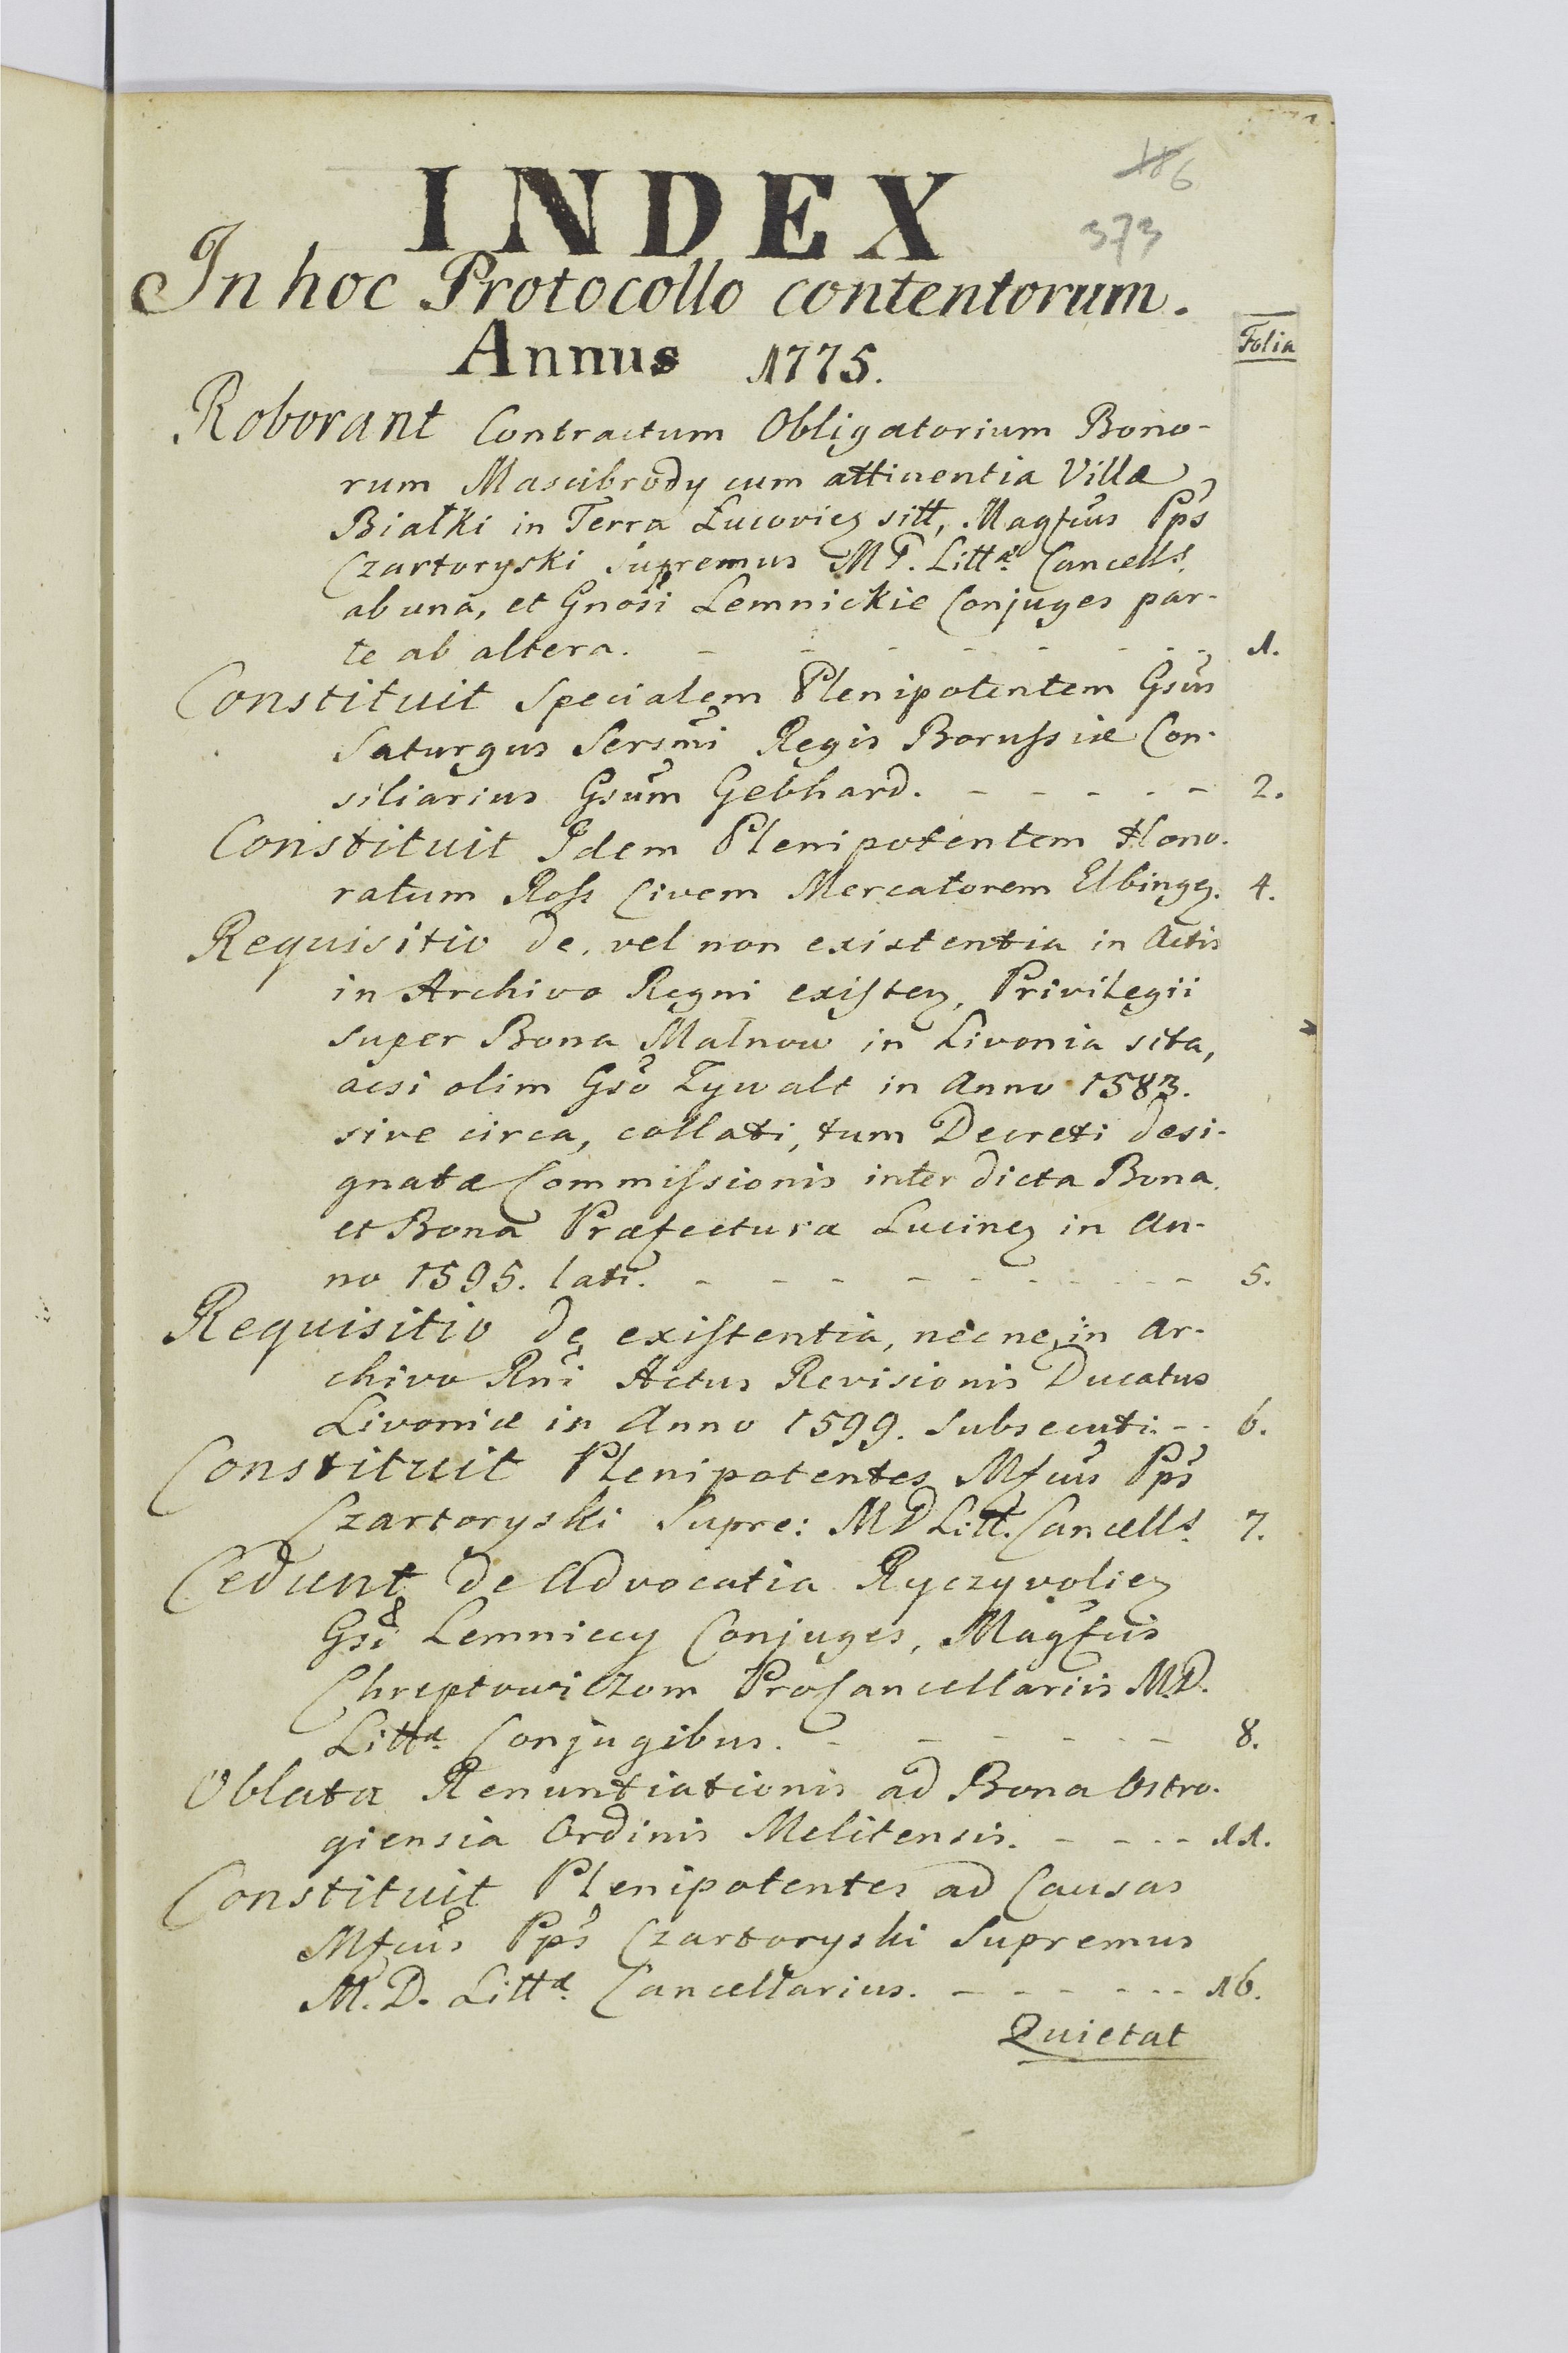 186
INDEX
373
In hoc Protocollo contentorum.
Annus 1775.
Folia
Roborant Contractum Obligatorium Bono-
rum Mascibrody cum attinentia Villa
Białki in Terra Łucovieȝ sitt, Magfcus Pps
Czartoryski Supremus M.D. Littæ Cancells.
ab una, et Gnosi Lemnickie Conjuges par-
te ab altera. - - - - - - - 1.
Constituit Specialem Plenipotentem Gsus
Saturgus Sersmi Regis Borussiæ Con-
siliarius Gsum Gebhard. - - - - - 2.
Constituit Idem Plenipotentem Hono-
ratum Ross Civem Mercatorem Elbingȝ. 4.
Requisitio de, vel non existentia in Actis
in Archivo Regni existeȝ, Privilegii
super Bona Malnow in Livonia sita,
acsi olim Gso Tywalt in Anno 1583.
sive circa, collati, tum Decreti desi-
gnatæ Commissionis inter dicta Bona
et Bona Præfectura Lucineȝ in An-
no 1595. lati. - - - - - - - - 5.
Requisitio de existentia, nec ne, in Ar-
chivo Rni Actus Revisionis Ducatus
Livoniæ in Anno 1599. subsecuti. - - 6.
Constituit Plenipotentes Mfcus Pps
Czartoryski Supre: MD Litt. Cancells. 7.
Cedunt de Advocatia Ryczyvolieȝ
Gsi Lemniccy Conjuges, Magfcis
Chreptowiczom ProCancellariis M.D.
Littæ Conjugibus. - - - - - - 8.
Oblata Renuntiationis ad Bona Ostro-
giensia Ordinis Melitensis. - - - - 11.
Constituit Plenipotentes ad Causas
Mfcus Pps Czartoryski Supremus
M.D. Littæ Cancellarius. - - - - - - 16.
Quietat